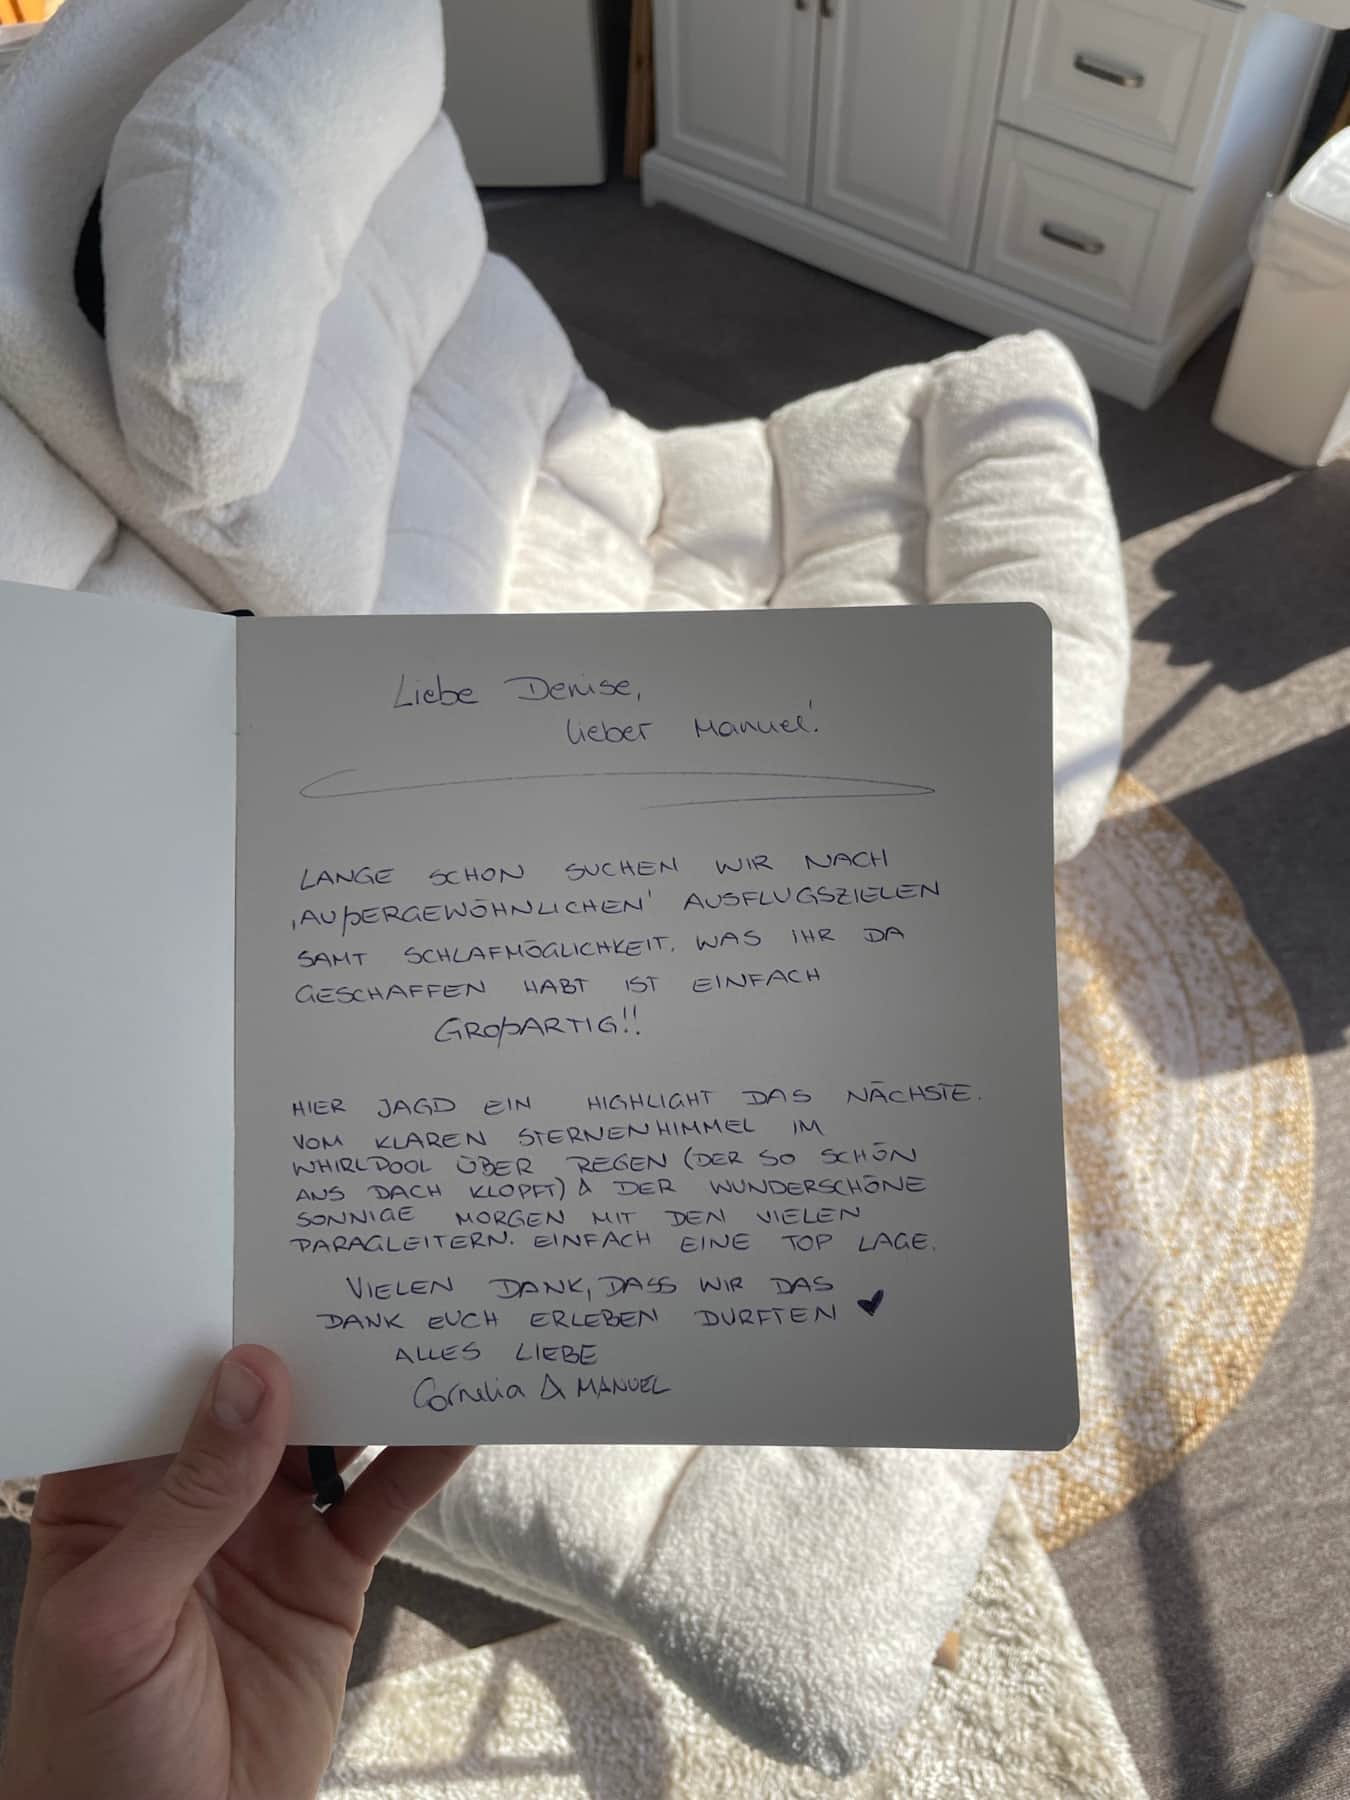 Liebe Denise,
lieber Manuel!
LANGE SCHON SUCHEN WIR NACH
‚AUßERGEWÖHNLICHEN' AUSFLUGSZIELEN
SAMT SCHLAFMÖGLICHKEIT. WAS IHR DA
GESCHAFFEN HABT IST EINFACH
GROßARTIG!!
HIER JAGD EIN HIGHLIGHT DAS NÄCHSTE.
VOM KLAREN STERNENHIMMEL IM
WHIRLPOOL ÜBER REGEN (DER SO SCHÖN
ANS DACH KLOPFT) & DER WUNDERSCHÖNE
SONNIGE MORGEN MIT DEN VIELEN
PARAGLEITERN. EINFACH EINE TOP LAGE.
VIELEN DANK, DASS WIR DAS
DANK EUCH ERLEBEN DURFTEN ♥
ALLES LIEBE
Cornelia & MANUEL